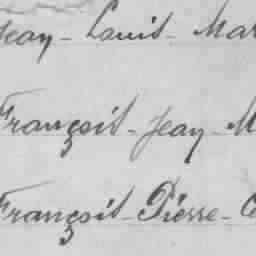 Jean-Louis-Mar
François-Jean-M
François-Pierre-